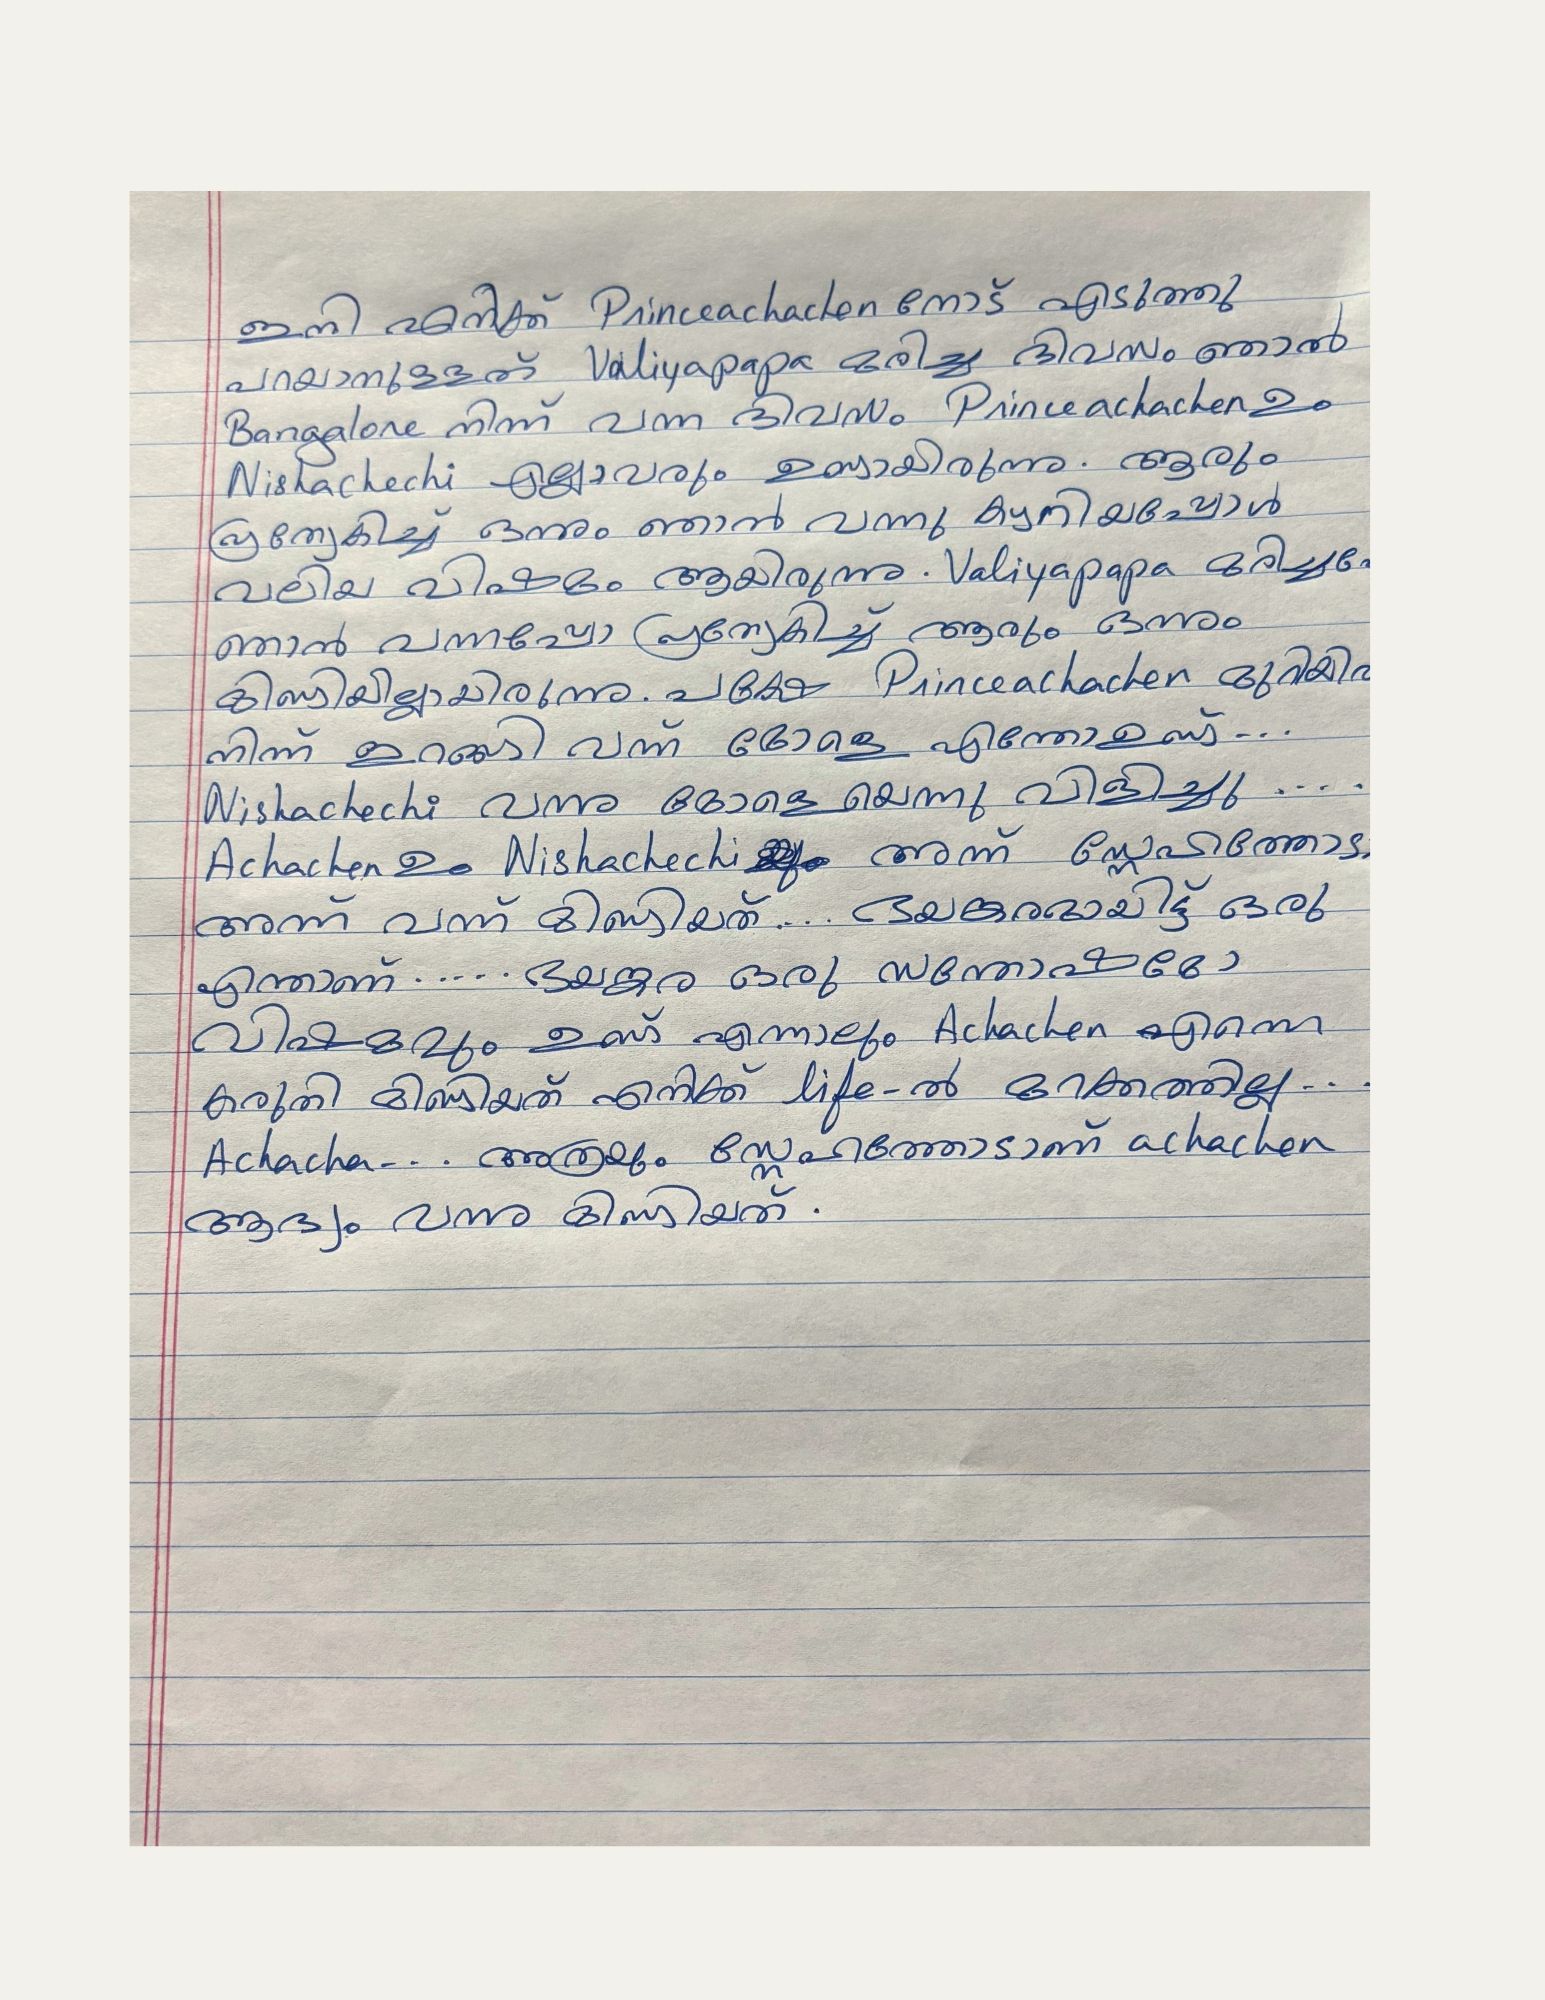 ഇനി എനിക്ക് Princeachachen നോട് എടുത്തു
പറയാനുള്ളത് Valiyapapa മരിച്ച ദിവസം ഞാൻ
Bangalore നിന്ന് വന്ന ദിവസം Princeachachen ഉം
Nishachechi എല്ലാവരും ഉണ്ടായിരുന്നു. ആരും
പ്രത്യേകിച്ച് ഒന്നും ഞാൻ വന്നു കഴിയപ്പോൾ
വലിയ വിഷമം ആയിരുന്നു. Valiyapapa
ഞാൻ വന്നപ്പോ പ്രത്യേകിച്ച് ആരും ഒന്നും
മിണ്ടിയില്ലായിരുന്നു. പക്ഷേ Princeachachen
നിന്ന് ഇറങ്ങി വന്ന് മോളെ എന്തോ ഉണ്ട്...
Nishachechi വന്നു മോളെ യെന്നു വിളിച്ചു ....
Achachen ഉം Nishachechi അന്ന്
അന്ന് വന്ന് മിണ്ടിയത്... ഭയങ്കരമായിട്ട് ഒരു
എന്താണ്..... ഭയങ്കര ഒരു സന്തോഷമോ
വിഷമവും ഉണ്ട് എന്നാലും Achachen എന്നെ
കരുതി മിണ്ടിയത് എനിക്ക് life-ൽ മറക്കത്തില്ല...
Achacha... അത്രയും സ്നേഹത്തോടാണ് achachen
ആദ്യം വന്നു മിണ്ടിയത്.